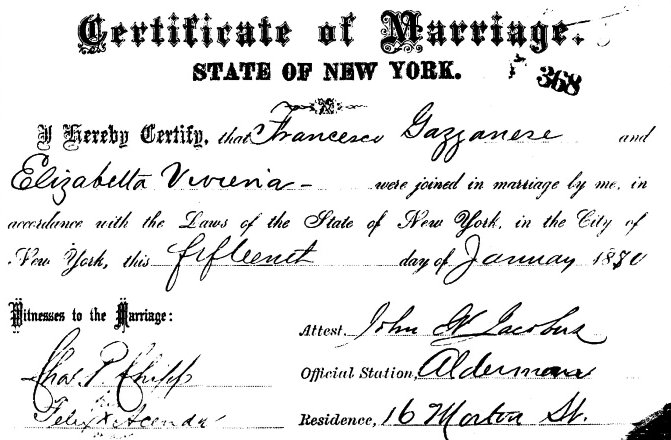 Certificate of Marriage.
STATE OF NEW YORK.
368
I Hereby Certify, that Francesco Gazzanese and
Elizabetta Viviena - were joined in marriage by me, in
accordance with the Laws of the State of New York, in the City of
New York, this fifteent day of January 18
Witnesses to the Marriage:
Attest, John W Jacobus
Chas. P. Chipp
Official Station, Alderman
Felix
Residence, 16 Morton St.